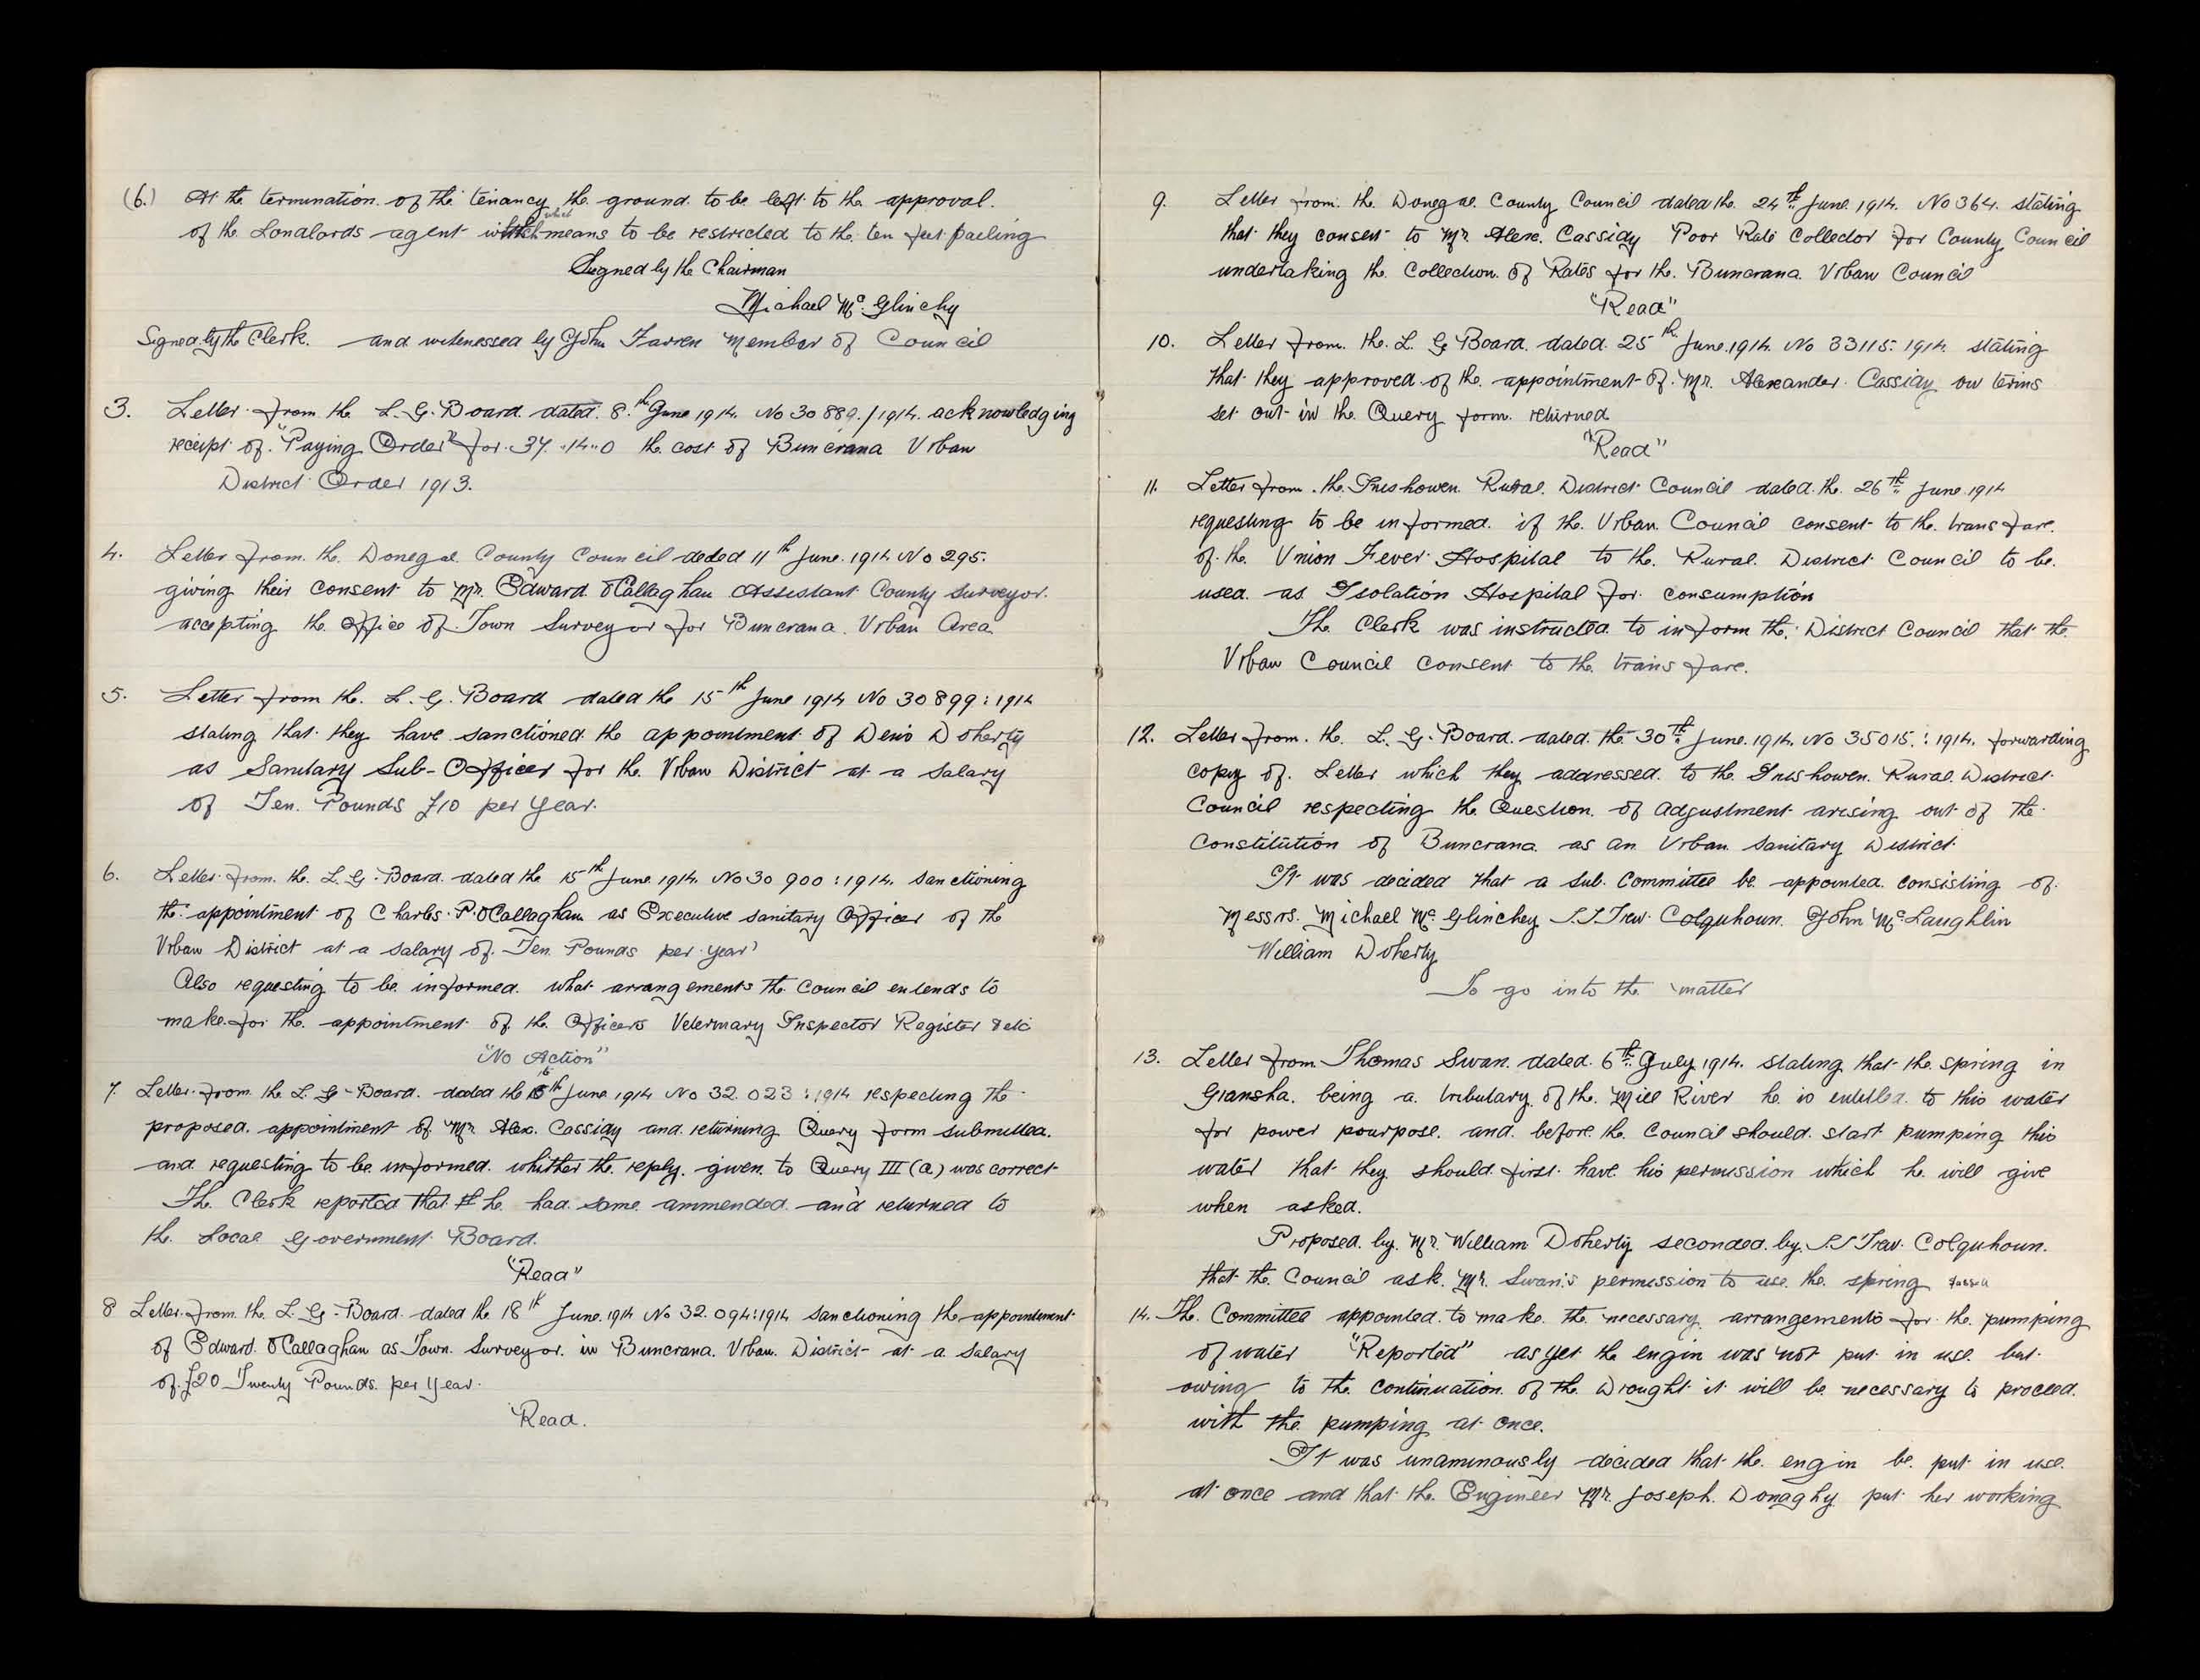 (6.) At the termination of the tenancy the ground to be left to the approval.
of the Landlords agent which what means to be restricted to the ten feet pailing
Signed by the Chairman
Michael Mc. Glinchy
Signed by the Clerk. and witnessed by John Farren Member of Council
3. Letter from the L. G. Board dated 8.th June 1914. No 30889./1914. acknowledging
receipt of "Paying Order" for 37.-14-0 the cost of Buncrana Urban
District Order 1913.
4. Letter from the Donegal County Council dated 11th June. 1914 No 295.
giving their consent to Mr. Edward O'Callaghan Assistant County Surveyor.
accepting the office of Town Surveyor for Buncrana Urban Area.
5. Letter from the L. G. Board dated the 15th June 1914 No 30899:1914
stating that they have sanctioned the appointment of Denis Doherty
as Sanitary Sub-Officer for the Urban District at a Salary
of Ten Pounds £10 per year.
6. Letter from the L. G. Board dated the 15th June 1914. No 30900:1914. sanctioning
the appointment of Charles P. O'Callaghan as Executive Sanitary Officer of the
Urban District at a salary of Ten Pounds per year
Also requesting to be informed what arrangements the Council entends to
make for the appointment of the Officers Veterinary Inspector Register &etc
"No Action"
7. Letter from the L. G. Board. dated the 16th June 1914 No 32.023:1914 respecting the
proposed appointment of Mr. Alex. Cassidy and returning Query form submitted.
and requesting to be informed whither the reply given to Query III (a) was correct
The Clerk reported that he had same ammended and returned to
the Local Government Board.
"Read"
8 Letter from the L. G. Board dated the 18th June 1914 No 32.094:1914 sanctioning the appointment
of Edward O'Callaghan as Town Surveyor in Buncrana Urban District at a Salary
of £20 Twenty Pounds per Year.
Read.
9. Letter from the Donegal County Council dated the 24th June 1914. No 364. stating
that they consent to Mr. Alex. Cassidy Poor Rate Collector for County Council
undertaking the Collection of Rates for the Buncrana Urban Council
"Read"
10. Letter from the L. G. Board dated 25th June 1914. No 33115:1914. stating
that they approved of the appointment of Mr. Alexander Cassidy on terms
set out in the Query form returned
"Read"
11. Letter from the Inishowen Rural District Council dated the 26th June 1914
requesting to be informed if the Urban Council consent to the transfare.
of the Union Fever Hospital to the Rural District Council to be
used as Isolation Hospital for consumption
The Clerk was instructed to inform the District Council that the
Urban Council consent to the transfare.
12. Letter from the L. G. Board dated the 30th June 1914. No 35015:1914. forwarding
copy of Letter which they addressed to the Inishowen Rural District
Council respecting the Question of adjustment arising out of the
Constitution of Buncrana as an Urban Sanitary District
It was decided that a Sub. Committee be appointed consisting of
Messrs. Michael Mc. Glinchey S.S. Trew Colquhoun. John Mc. Laughlin
William Doherty
To go into the matter
13. Letter from Thomas Swan dated 6th July 1914. stating that the spring in
Gransha being a tributary of the Mill River he is entitled to this water
for power pourpose and before the Council should start pumping this
water that they should first have his permission which he will give
when asked.
Proposed by Mr. William Doherty seconded by S.S Trew Colquhoun.
that the Council ask Mr. Swan's permission to use the spring
14. The Committee appointed to make the necessary arrangements for the pumping
of water "Reported" as yet the engin was not put in use but
owing to the continuation of the Drought it will be necessary to proceed
with the pumping at once.
It was unaminously decided that the engin be put in use
at once and that the Engineer Mr. Joseph Donaghy put her working